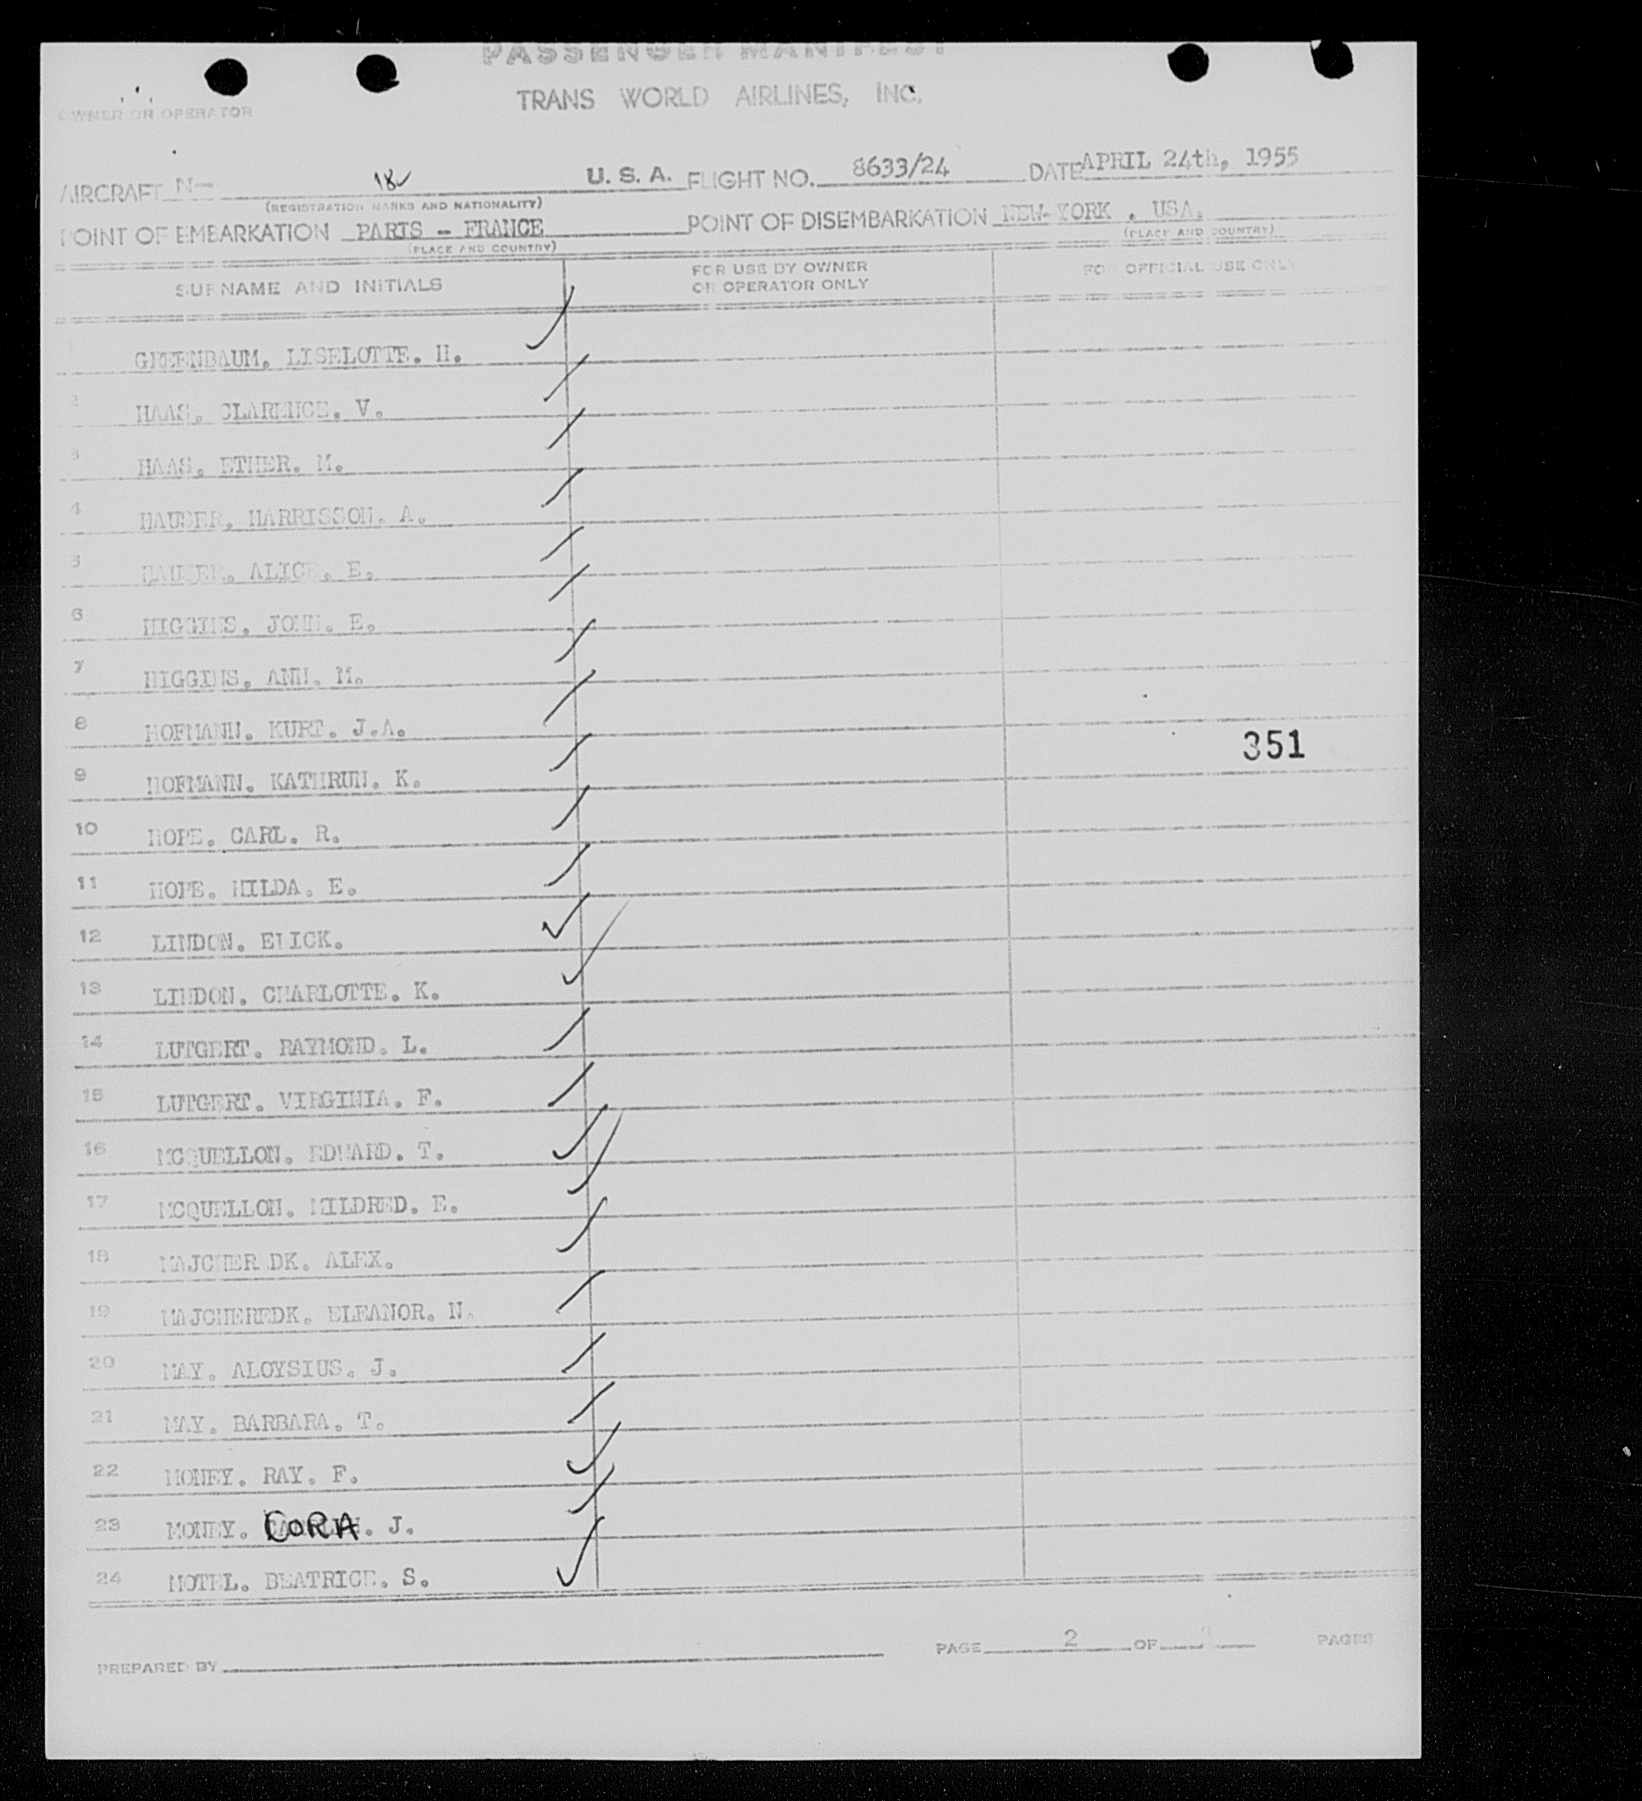 PASSENGER MANIFEST
TRANS WORLD AIRLINES, INC.
OWNER OR OPERATOR
AIRCRAFT N- 18 U. S. A. FLIGHT NO. 8633/24 DATE APRIL 24th, 1955
(REGISTRATION MARKS AND NATIONALITY)
POINT OF EMBARKATION PARIS - FRANCE POINT OF DISEMBARKATION NEW-YORK . USA.
(PLACE AND COUNTRY) (PLACE AND COUNTRY)
SURNAME AND INITIALS FOR USE BY OWNER OR OPERATOR ONLY FOR OFFICIAL USE ONLY
GREENBAUM. LISELOTTE. H.
2 HAAS. CLARENCE. V.
3 HAAS. ETHER. M.
4 HAUSER. HARRISSON. A.
5 HAUSER. ALICE. E.
6 HIGGINS. JOHN. E.
7 HIGGINS. ANN. M.
8 HOFMANN. KURT. J.A.
351
9 HOFMANN. KATHRUN. K.
10 HOPE. CARL. R.
11 HOPE. HILDA. E.
12 LINDON. ERICK.
13 LINDON. CHARLOTTE. K.
14 LUTGERT. RAYMOND. L.
15 LUTGERT. VIRGINIA. F.
16 MCQUELLON. EDWARD. T.
17 MCQUELLON. MILDRED. E.
18 MAJCHEREDK. ALEX.
19 MAJCHEREDK. ELEANOR. N.
20 MAY. ALOYSIUS. J.
21 MAY. BARBARA. T.
22 MONEY. RAY. F.
23 MONEY. CORA. J.
24 MOTEL. BEATRICE. S.
PREPARED BY PAGE 2 OF PAGES